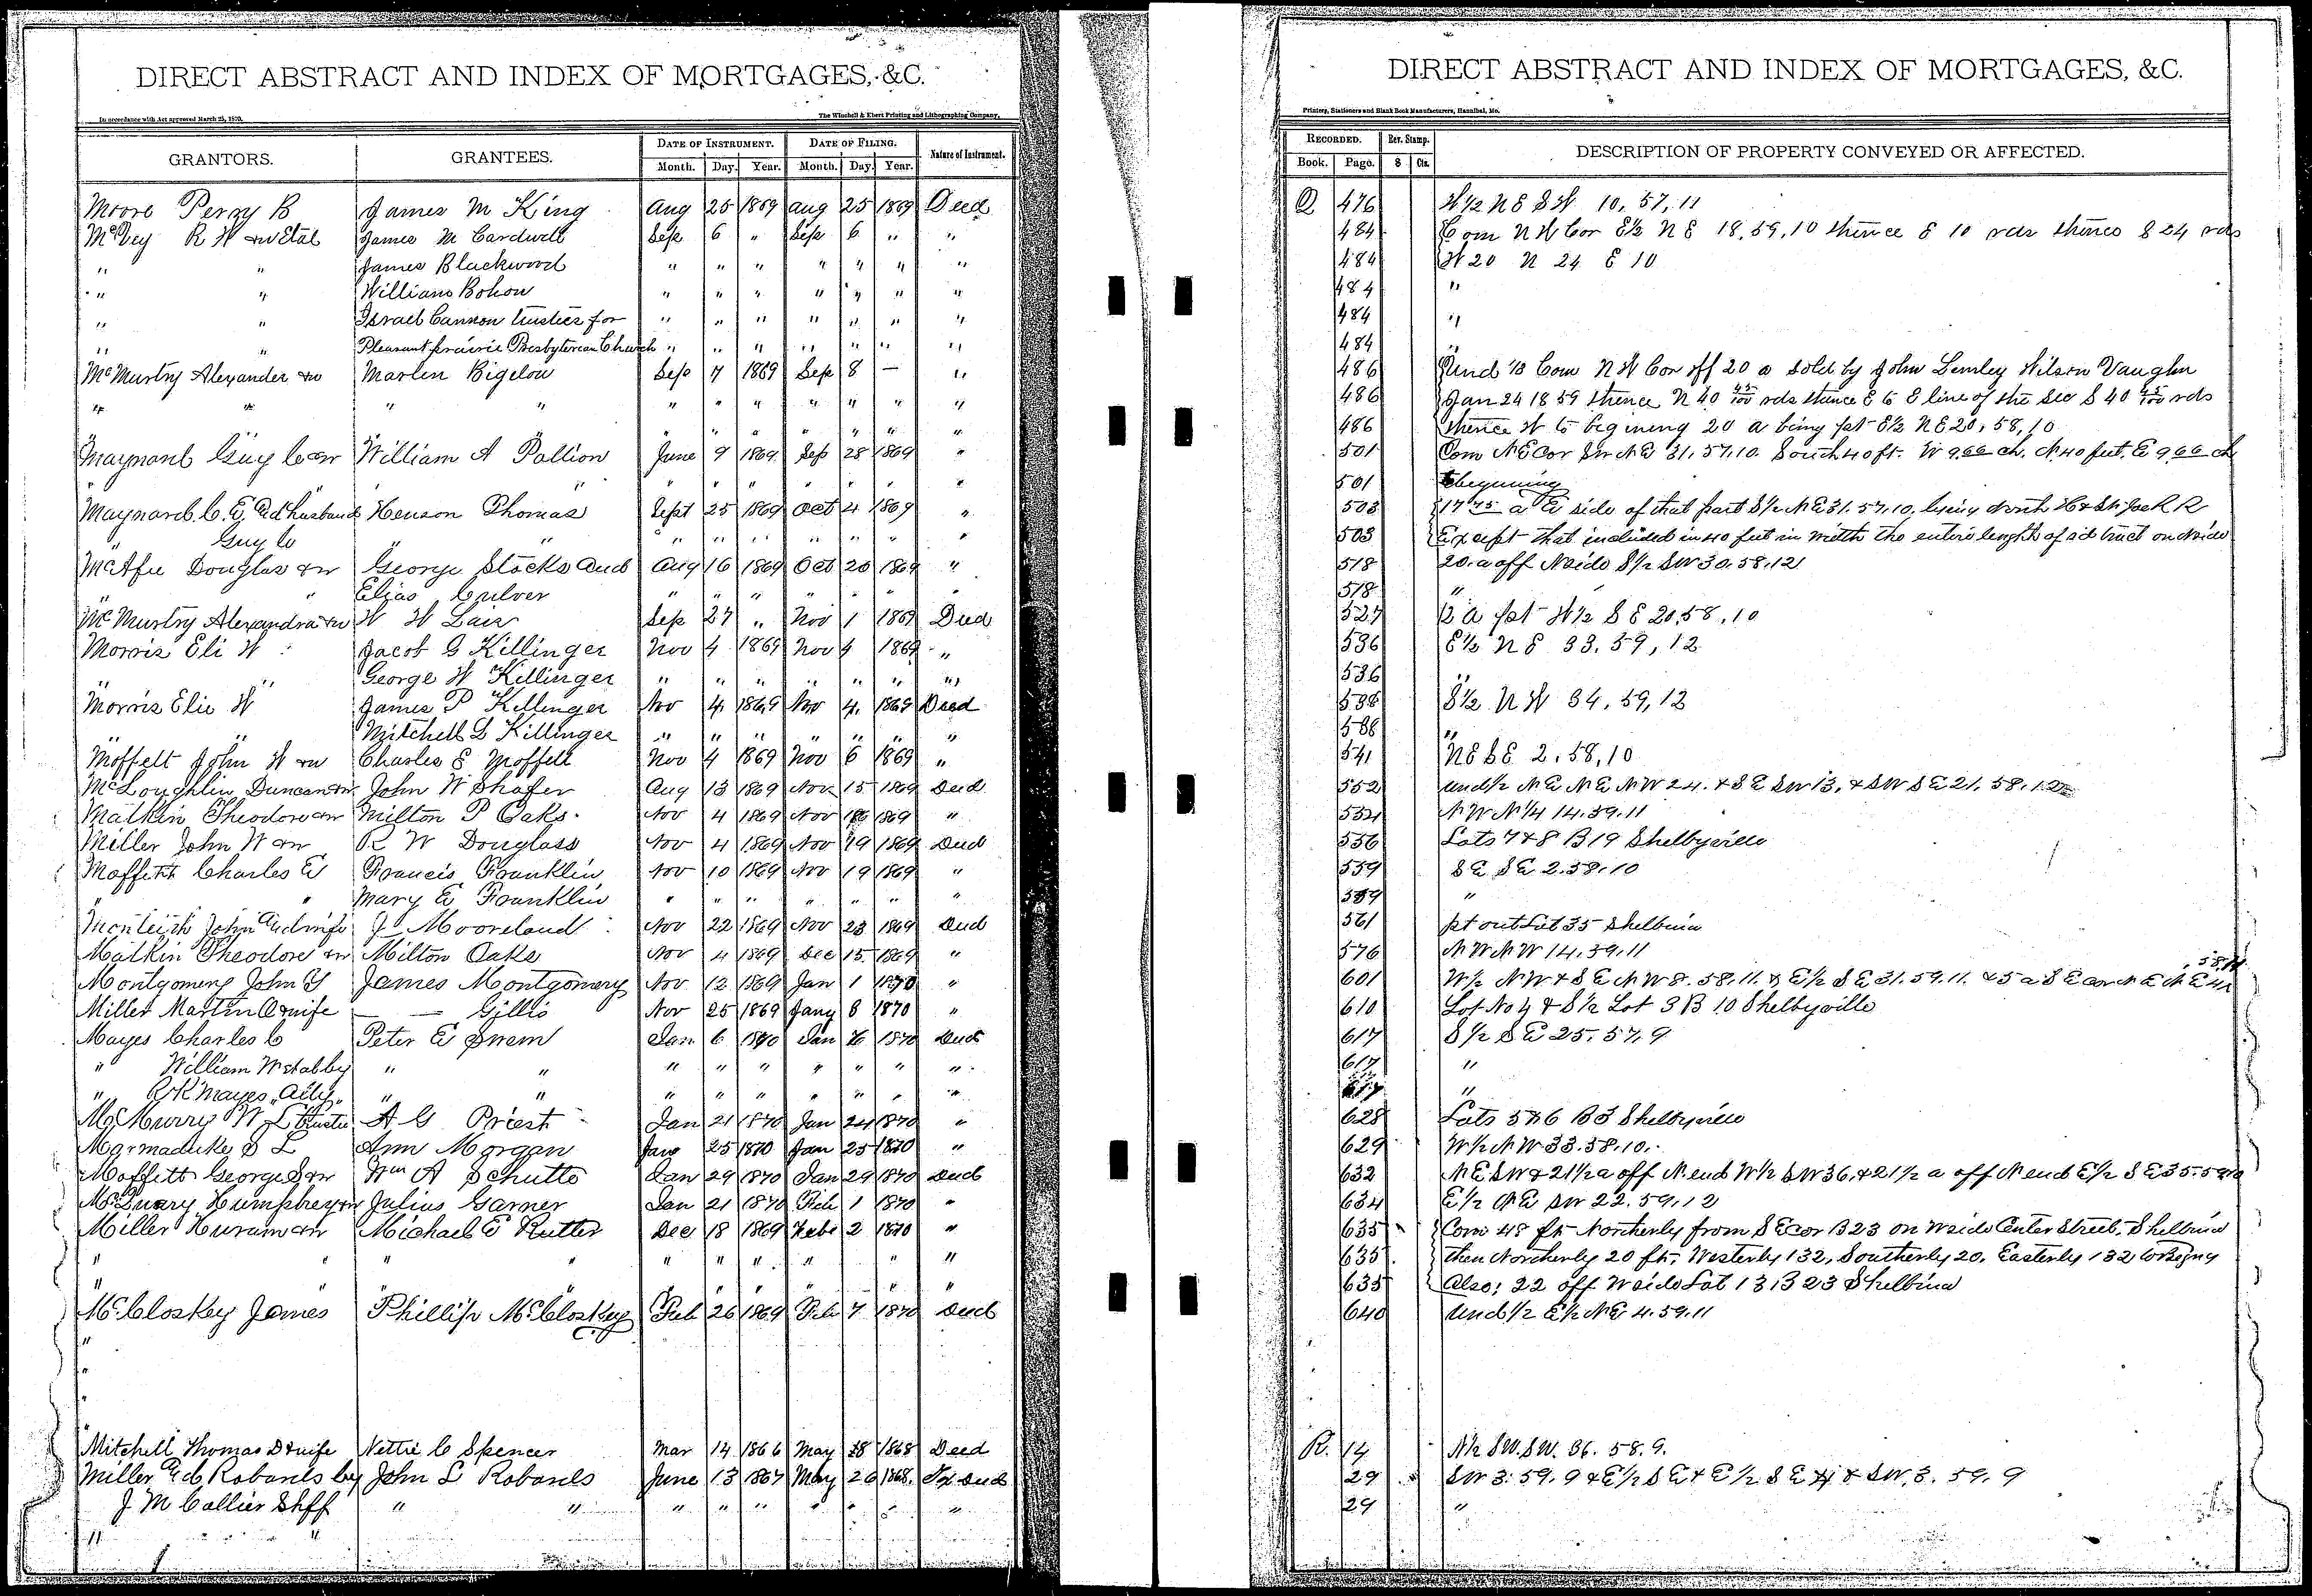 DIRECT ABSTRACT AND INDEX OF MORTGAGES, &C.
In accordance with Act approved March 25, 1870.
The Winchell & Ebert Printing and Lithographing Company,
GRANTORS. GRANTEES. DATE OF INSTRUMENT. DATE OF FILING. Nature of Instrument.
Month. Day. Year. Month. Day. Year.
Moore Perry B James M King Aug 25 1869 Aug 25 1869 Deed
McVey R H & w Etal James M Cardwell Sep 6 " Sep 6 " "
" " James Blackwood " " " " " " "
" " William Bohon " " " " " " "
" " Israel Cannon trustees for " " " " " " "
" " Pleasant prairie Presbyterian Church " " " " " " "
McMurtry Alexander & w Marlin Bigelow Sep 7 1869 Sep 8 — "
" " " " " " " " " " "
" " " " " " "
Maynard Guy C & w William A Pollion June 9 1869 Sep 28 1869 "
" " " " " " " " "
Maynard C. E. & husband Henson Thomas Sept 25 1869 Oct 4 1869 "
" Guy C " " " " " " " "
McAfee Douglas & w George Stocks and Aug 16 1869 Oct 20 1869 "
" " Elias Culver " " " " " "
McMurtry Alexandra & w W W Lair Sep 27 " Nov 1 1869 Deed
Morris Eli W Jacob G Killinger Nov 4 1869 Nov 4 1869 "
" " George W Killinger " " " " " " "
Morris Elie W James P Killinger Nov 4 1869 Nov 4 1869 Deed
" " Mitchell L Killinger " " " " " " "
Moffett John W & w Charles E Moffett Nov 4 1869 Nov 6 1869 "
McLoughlin Duncan & w John W Shafer Aug 13 1869 Nov 15 1869 Deed
Matkin Theodore & w Milton P Oaks. Nov 4 1869 Nov 1869 "
Miller John W & w R W Douglass Nov 4 1869 Nov 19 1869 Deed
Moffett Charles E Francis Franklin Nov 10 1869 Nov 19 1869 "
" " Mary E Franklin " " " " " " "
Monteith John & wife J Mooreland Nov 22 1869 Nov 23 1869 Deed
Matkin Theodore & w Milton Oaks Nov 4 1869 Dec 15 1869 "
Montgomery John Y James Montgomery Nov 12 1869 Jan 1 1870 "
Miller Martin & wife — — Gillis Nov 25 1869 Jany 8 1870 "
Mayes Charles C Peter E Swem Jan 6 1870 Jan 1870 Deed
" William " " " " " " " " "
" R K Mayes, Atty, " " " " " " " " "
McMurry W L Trustee A G Priest Jan 21 1870 Jan 24 1870 "
Marmaduke S L Ann Morgan Jan 25 1870 Jan 25 1870 "
Moffett George S & w Wm A Schutte Jan 29 1870 Jan 29 1870 Deed
McQuary Humphrey & w Julius Garner Jan 21 1870 Feb 1 1870 "
Miller Huram & w Michael E Rutter Dec 18 1869 Feb 2 1870 "
" " " " " " " " "
" " " " " " " "
McCloskey James Phillip McCloskey Feb 26 1869 Feb 7 1870 Deed
"
Mitchell Thomas D & wife Nettie C Spencer Mar 14 1866 May 1868 Deed
Miller & C Robards by John L Robards June 13 1867 May 26 1868. Tx Deed
J M Collier Shff " " " " " " " " "
" "
DIRECT ABSTRACT AND INDEX OF MORTGAGES, &C.
Printers, Stationers and Blank Book Manufacturers, Hannibal, Mo.
RECORDED. Rev. Stamp. DESCRIPTION OF PROPERTY CONVEYED OR AFFECTED.
Book. Page. $ Cts.
Q 476 W½ N E S W 10, 57, 11
484 Com N W Cor E½ N E 18, 59, 10 thence E 10 rds thence S 24 rds
484 W 20 N 24 E 10
484 "
484 "
484 "
486 Und ⅓ Com N W Cor off 20 a sold by John Lemley Wilson Vaughn
486 Jan 24 1859 thence N 40 45/100 rds thence E to E line of the Sec S 40 45/100 rds
486 thence W to begining 20 a being pt E½ N E 20, 58, 10
501 Com N E Cor SW N E 31. 57. 10. South 40 ft. W 9.66 ch. N. 40 feet. E 9.66 ch
501 beginning
503 17 75 a E side of that part S½ N E 31. 57. 10, lying North H & St Joe R R
503 Except that included in 40 feet in width the entire length of sd tract on N side
518 20. a off N side S½ SW 30. 58. 12
518 "
527 12 a pt W½ S E 20, 58, 10
536 E½ N E 33. 59, 12
536
538 S½ N W 34, 59, 12
538 "
541 N E S E 2, 58, 10
552 und ½ N E N E N W 24. & S E SW 13, & SW S E 21. 58. 12
554 N W N ¼ 14. 59. 11
556 Lots 7 & 8 B 19 Shelbyville
559 S E S E 2. 58. 10
559 "
561 pt out Lot 35 Shelbina
576 N W N W 14. 59. 11
601 W½ N W & S E N W 8. 58. 11. & E½ S E 31. 59. 11. & 5 a S E cor N E N E 58, 11
610 Lot No 4 & S½ Lot 3 B 10 Shelbyville
617 S½ S E 25. 57. 9
617 "
617 "
628 Lots 5 & 6 B 3 Shelbyville
629 W½ N W 33. 58. 10.
632 N E SW & 21½ a off N end W½ SW 36. & 21½ a off N end E½ S E 35.
634 E½ N E SW 22. 59. 12
635 Com 48 ft Northerly from S E cor B 23 on W side Center Street, Shelbina
635 then Northerly 20 ft, Westerly 132, Southerly 20, Easterly 132 to Begng
635 Also; 22 off W side Lot 13 B 23 Shelbina
640 Und ½ E½ N E 4. 59. 11
R. 14 N½ SW. SW. 36. 58. 9.
29 SW 3. 59. 9 & E½ S E & E½ S E 4 & SW. 3. 59. 9
29 "